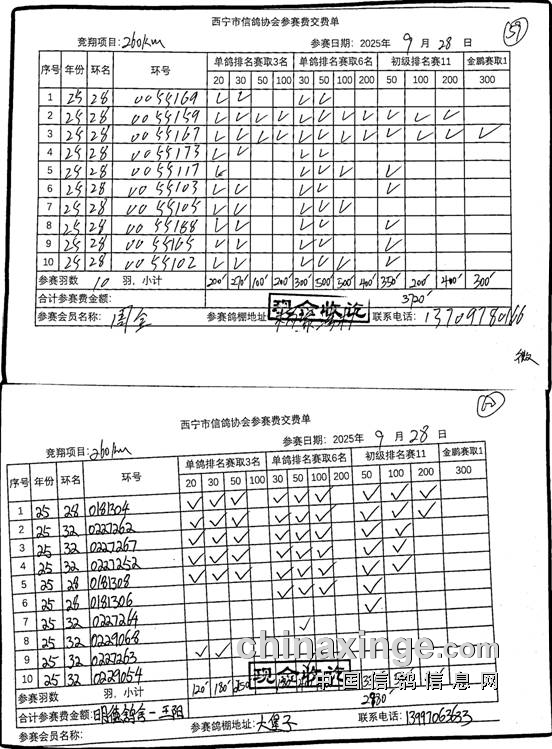 59
西宁市信鸽协会参赛费交费单
竞翔项目：260km 参赛日期：2025年 9 月 28 日
序号 年份 环名 环号 单鸽排名赛取3名 单鸽排名赛取6名 初级排名赛11 金鹏赛取1
20 30 50 100 30 50 100 200 50 100 200 300
1 25 28 0055169 ✓ ✓ ✓ ✓
2 25 28 0055159 ✓ ✓ ✓ ✓ ✓ ✓ ✓ ✓ ✓ ✓ ✓
3 25 28 0055167 ✓ ✓ ✓ ✓ ✓ ✓ ✓ ✓ ✓ ✓ ✓ ✓
4 25 28 0055173 ✓ ✓ ✓ ✓
5 25 28 0055117 ✓ ✓ ✓ ✓ ✓
6 25 28 0055103 ✓ ✓ ✓ ✓ ✓
7 25 28 0055105 ✓ ✓ ✓ ✓ ✓
8 25 28 0055188 ✓ ✓ ✓ ✓ ✓
9 25 28 0055165 ✓ ✓ ✓ ✓ ✓
10 25 28 0055102 ✓ ✓ ✓ ✓ ✓ ✓
参赛羽数 10 羽，小计 200 270 100 200 300 500 500 400 350 200 400 300
合计参赛费金额： 3720
参赛会员名称： 周全 参赛鸽棚地址 现金监讫 联系电话： 13709780166
微
西宁市信鸽协会参赛费交费单
竞翔项目：260km 参赛日期：2025年 9 月 28 日
序号 年份 环名 环号 单鸽排名赛取3名 单鸽排名赛取6名 初级排名赛11 金鹏赛取1
20 30 50 100 30 50 100 200 50 100 200 300
1 25 28 0181304 ✓ ✓ ✓ ✓ ✓ ✓ ✓ ✓ ✓
2 25 32 0227262 ✓ ✓ ✓ ✓ ✓ ✓ ✓ ✓ ✓
3 25 32 0227267 ✓ ✓ ✓ ✓ ✓ ✓ ✓ ✓
4 25 32 0227252 ✓ ✓ ✓ ✓ ✓ ✓ ✓ ✓
5 25 28 0181308 ✓ ✓ ✓ ✓ ✓ ✓ ✓
6 25 28 0181306 ✓
7 25 32 0227264 ✓
8 25 32 0229068
9 25 32 0227263 ✓ ✓
10 25 32 0229054
chinaxinge.com
中国信鸽信息网
参赛羽数 羽，小计 120 180 250 现金监讫
合计参赛费金额： 2930
参赛会员名称： 参赛鸽棚地址 大堡子 联系电话： 13997063633